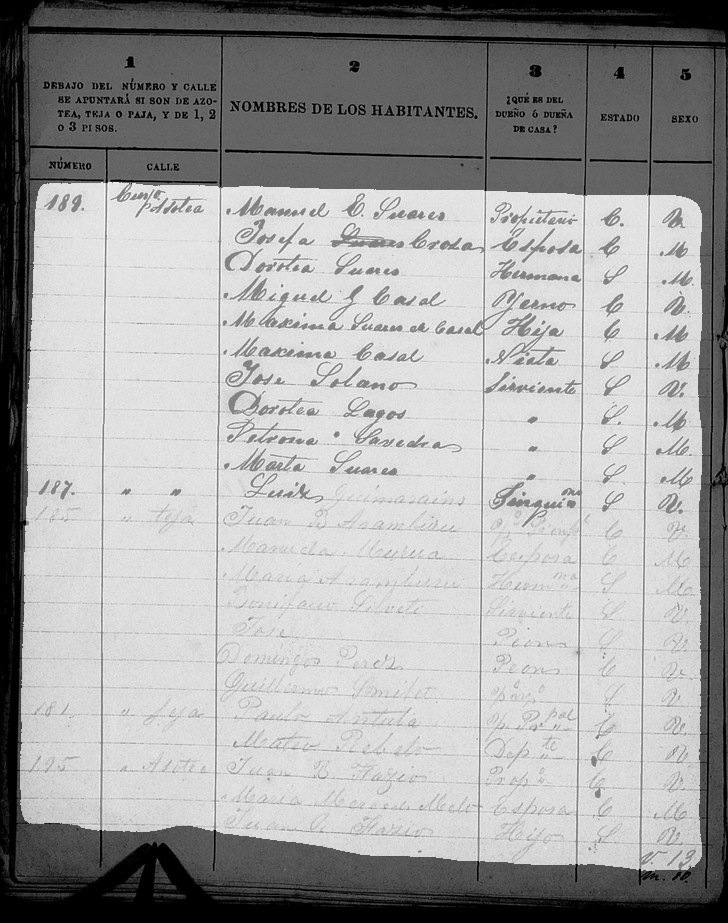 1 2 3 4 5
DEBAJO DEL NÚMERO Y CALLE
SE APUNTARÁ SI SON DE AZO-
TEA, TEJA O PAJA, Y DE 1, 2
O 3 PISOS.
NOMBRES DE LOS HABITANTES.
¿QUÉ ES DEL
DUEÑO Ó DUEÑA
DE CASA?
ESTADO
SEXO
NÚMERO CALLE
189. Azotea Manuel E. Suares Propietario C. V.
Josefa Suares Crosa Esposa C M
Dorotea Suares Hermana S M.
Miguel G Casal Yerno C V.
Maxima Suares de Casal Hija C M
Maxima Casal Nieta S M
Jose Solano Sirviente S V.
Dorotea Lagos " S. M
Petrona Savedra " S M.
Marta Suares " S. M
187. " " Luiz Guimarains S V.
185 " teja Juan B Aramburu C V.
Manuela Esposa C M
Maria Aramburu Herm na S M
Bonifacio Sirviente S V.
Jose Peon S V
Domingos Perez Peon C V.
Guillermo S V
181 " teja Paulo C V.
Mateo Rebelo Dep te C V
195 " Azotea Juan B. Fazio Prop o C V.
Maria Melo Esposa C M
Juan Fazio Hijo S V.
V. 13
M. 10.